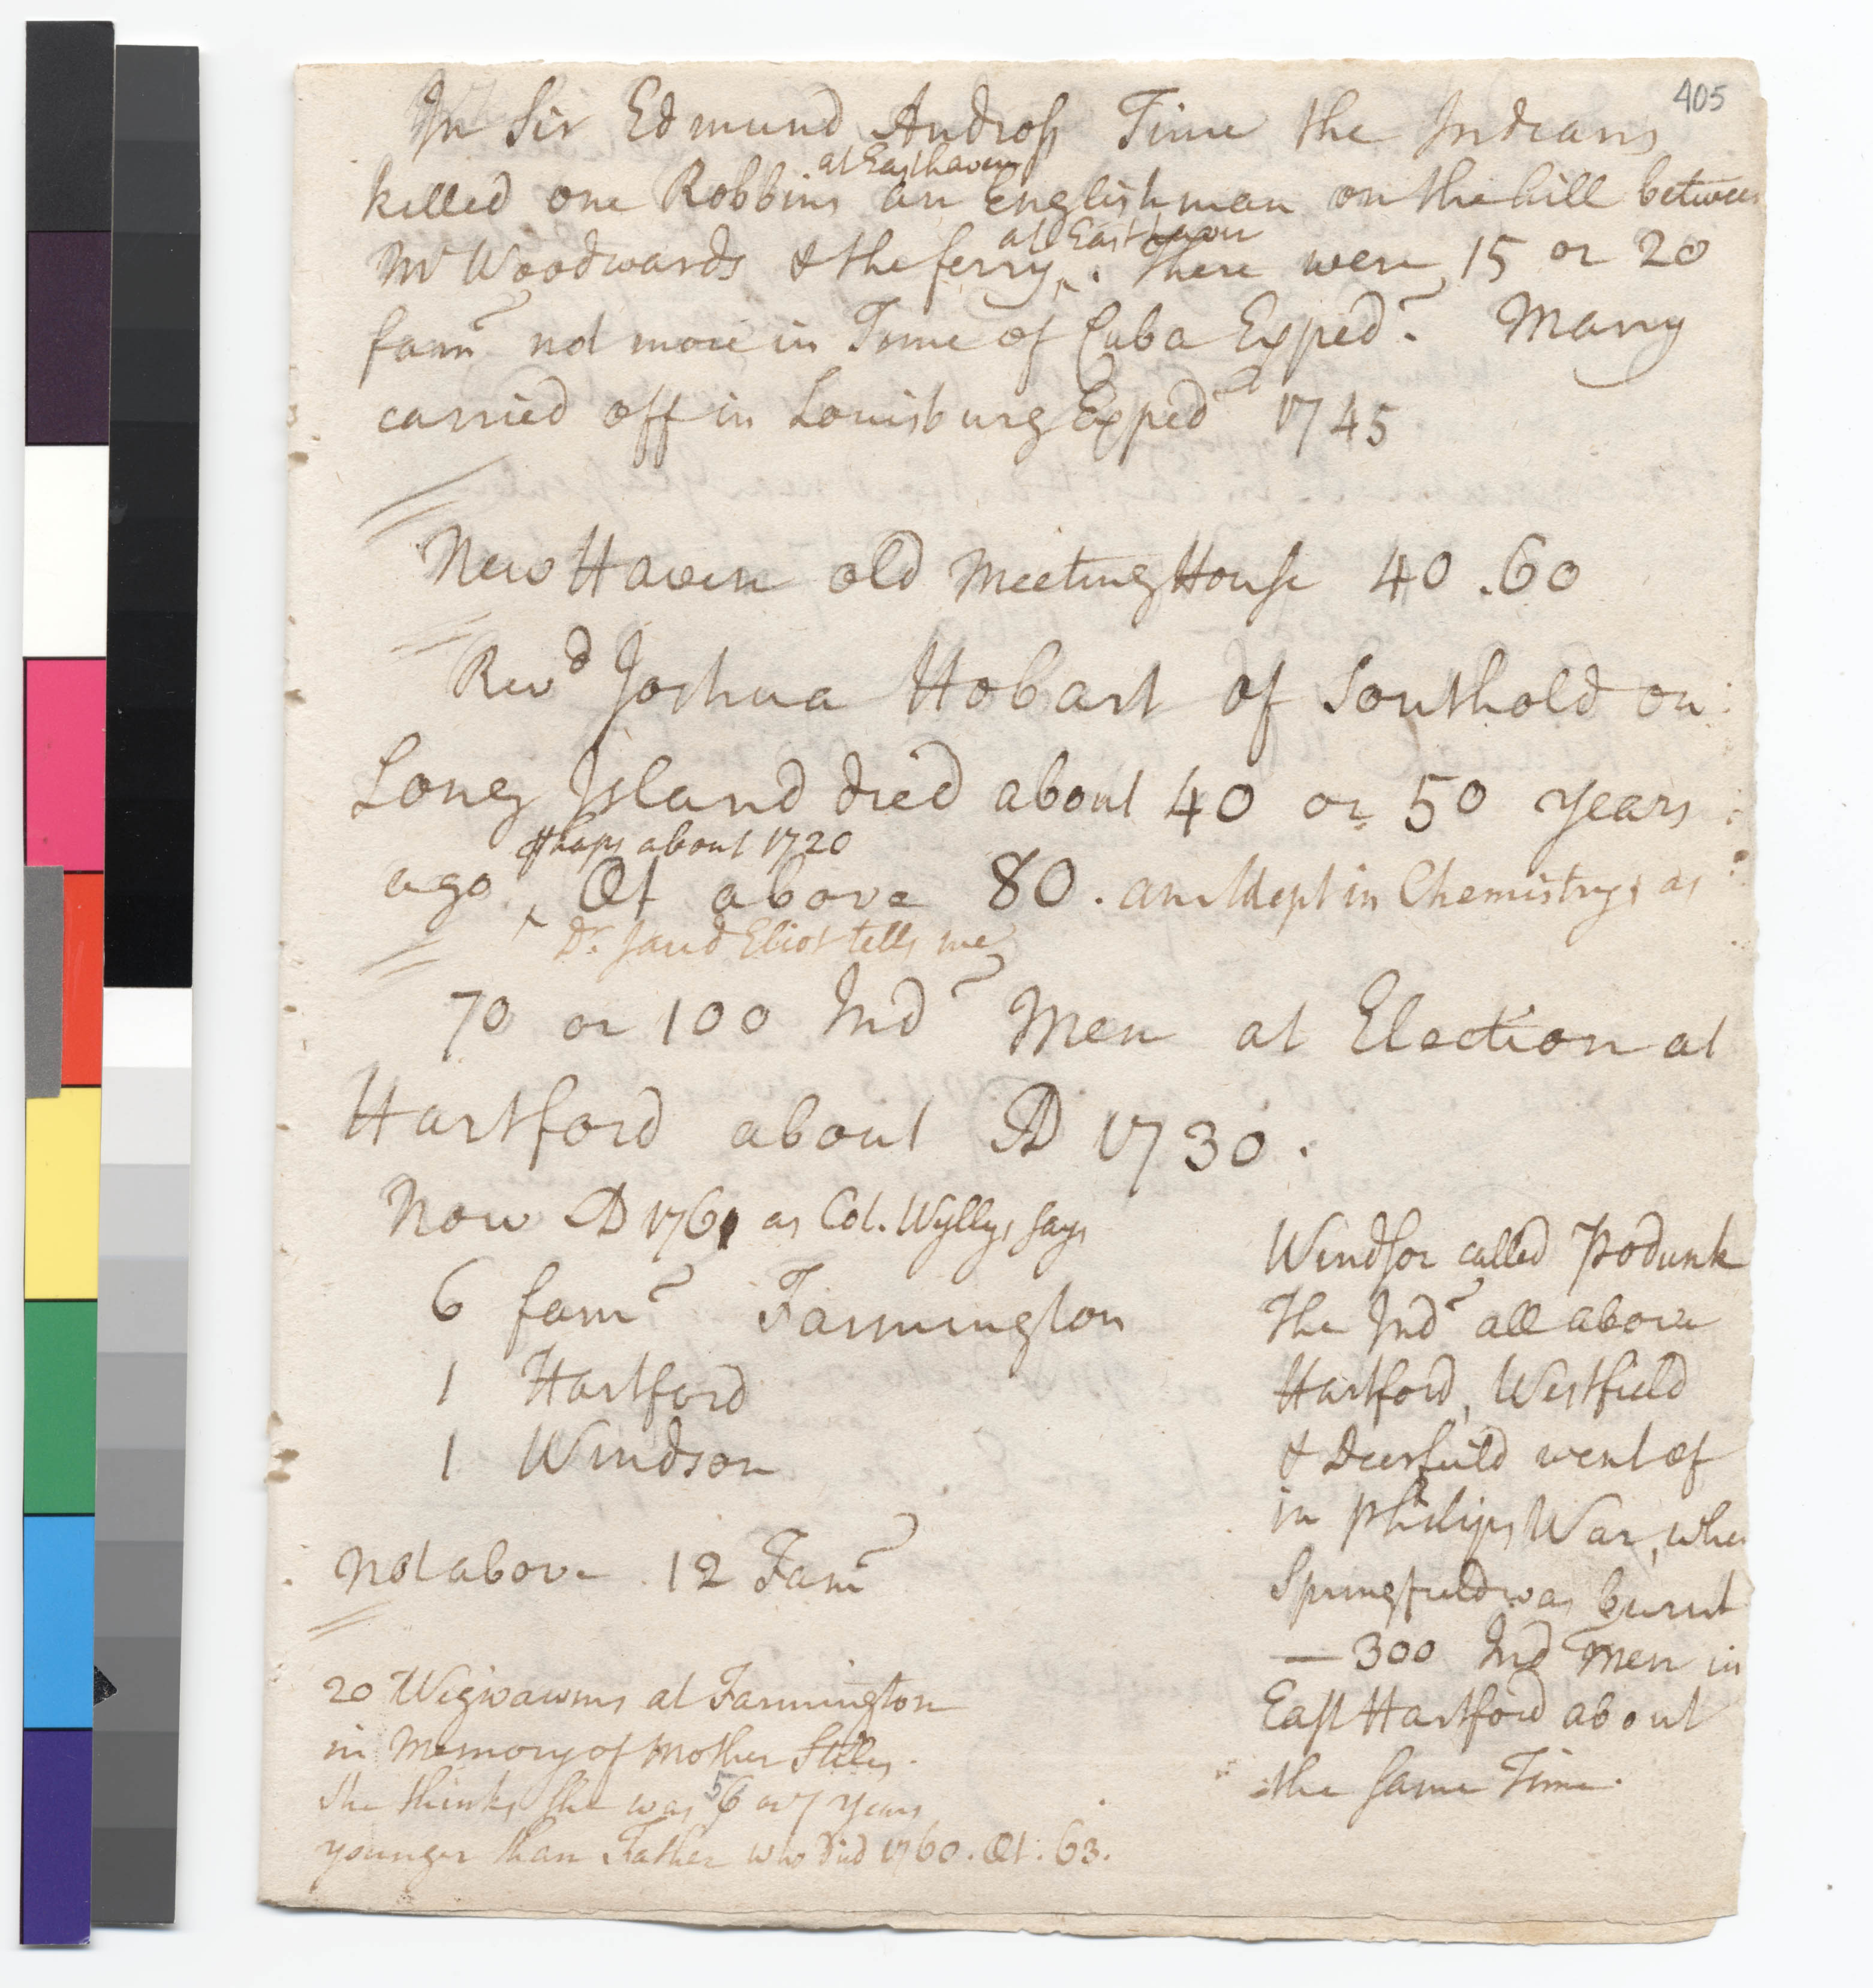 405
In Sir Edmund Andross Time the Indians
at Easthaven
killed one Robbins an Englishman on the hill between
at East haven
Mr Woodwards & the ferry ‸. There were 15 or 20
fam~ not more in Time of Cuba Exped~. Many
carried off in Louisburg Exped~ 1745
New Haven old Meeting House 40 . 60
Revd Joshua Hobart of Southold on
Long Island died about 40 or 50 years
ꝑhaps about 1720
ago ‸ Æt above 80. an Adept in Chemistry, as
Dr Jared Eliot tells me
70 or 100 Ind~ Men at Election at
Hartford about AD 1730.
Now AD 1761 as Col. Wyllys says
6 fam~ Farmington
1 Hartford
1 Windsor
not above 12 Fam~
20 Wigwawms at Farmington
in Memory of Mother Stiles.
She thinks she was 5 6 or 7 years
younger than Father who died 1760. Æt. 63.
Windsor called Podunk
The Ind~ all above
Hartford, Westfield
& Deerfield went of
in Philips War, when
Springfield was burnt
— 300 Ind~ Men in
East Hartford about
the same Time.